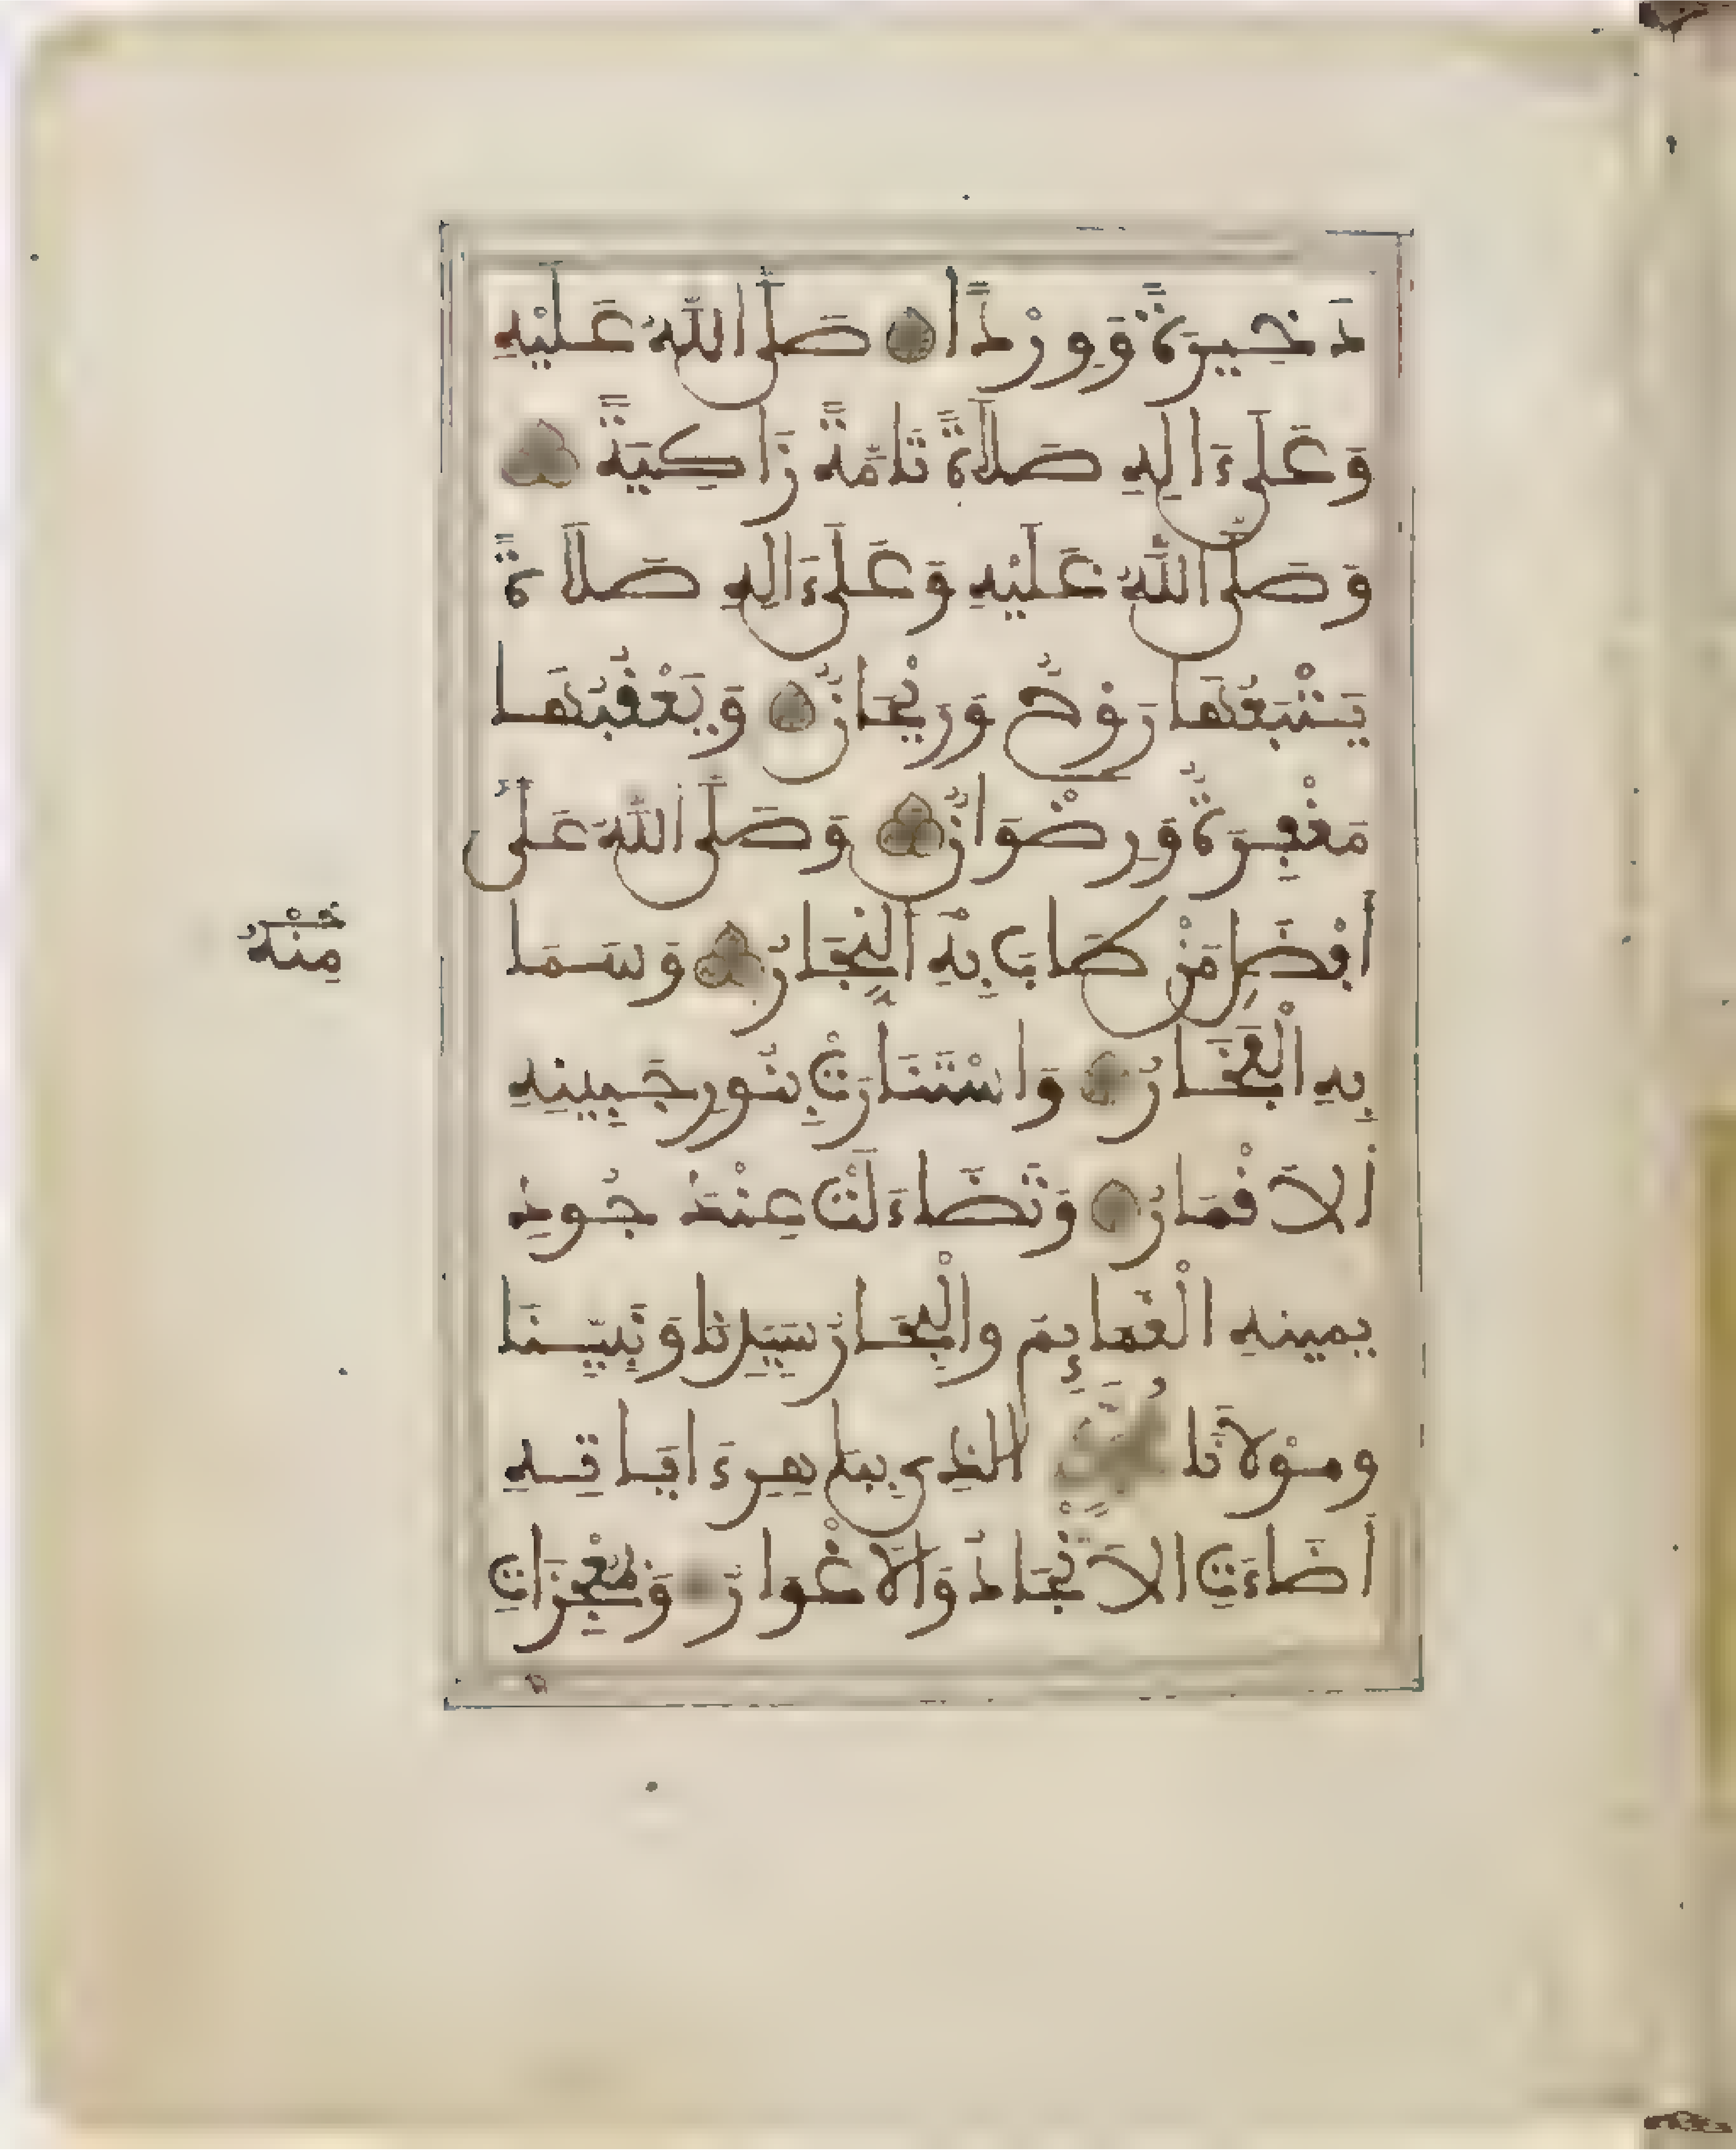 ذَخِيرَةً وَوِرْدًا صَلَّى اللهُ عَلَيْهِ
وَعَلَى ءَالِهِ صَلَاةً تَامَّةً زَاكِيَةً
وَصَلَّى اللهُ عَلَيْهِ وَعَلَى ءَالِهِ صَلَاةً
يَتْبَعُهَا رَوْحٌ وَرَيْحَانٌ وَيَعْقُبُهَا
مَغْفِرَةٌ وَرِضْوَانٌ وَصَلَّى اللهُ عَلَى
أَفْضَلِ مَنْ طَابَ بِهِ النِّجَارُ وَسَمَا
مِنْهُ
بِهِ الْفَخَارُ وَاسْتَنَارَتْ بِنُورِ جَبِينِهِ
الَاقْمَارُ وَتَضَاءَلَتْ عِنْدَ جُودِ
يَمِينِهِ الْغَمَائِمُ وَالْبِحَارُ سَيِّدِنَا وَنَبِيِّنَا
وَمَوْلَانَا مُحَمَّدٍ الَّذِي بِبَاهِرِ ءَايَاتِهِ
أَضَاءَتِ الَانْجَادُ وَالَاغْوَارُ وَبِمُعْجِزَاتِ